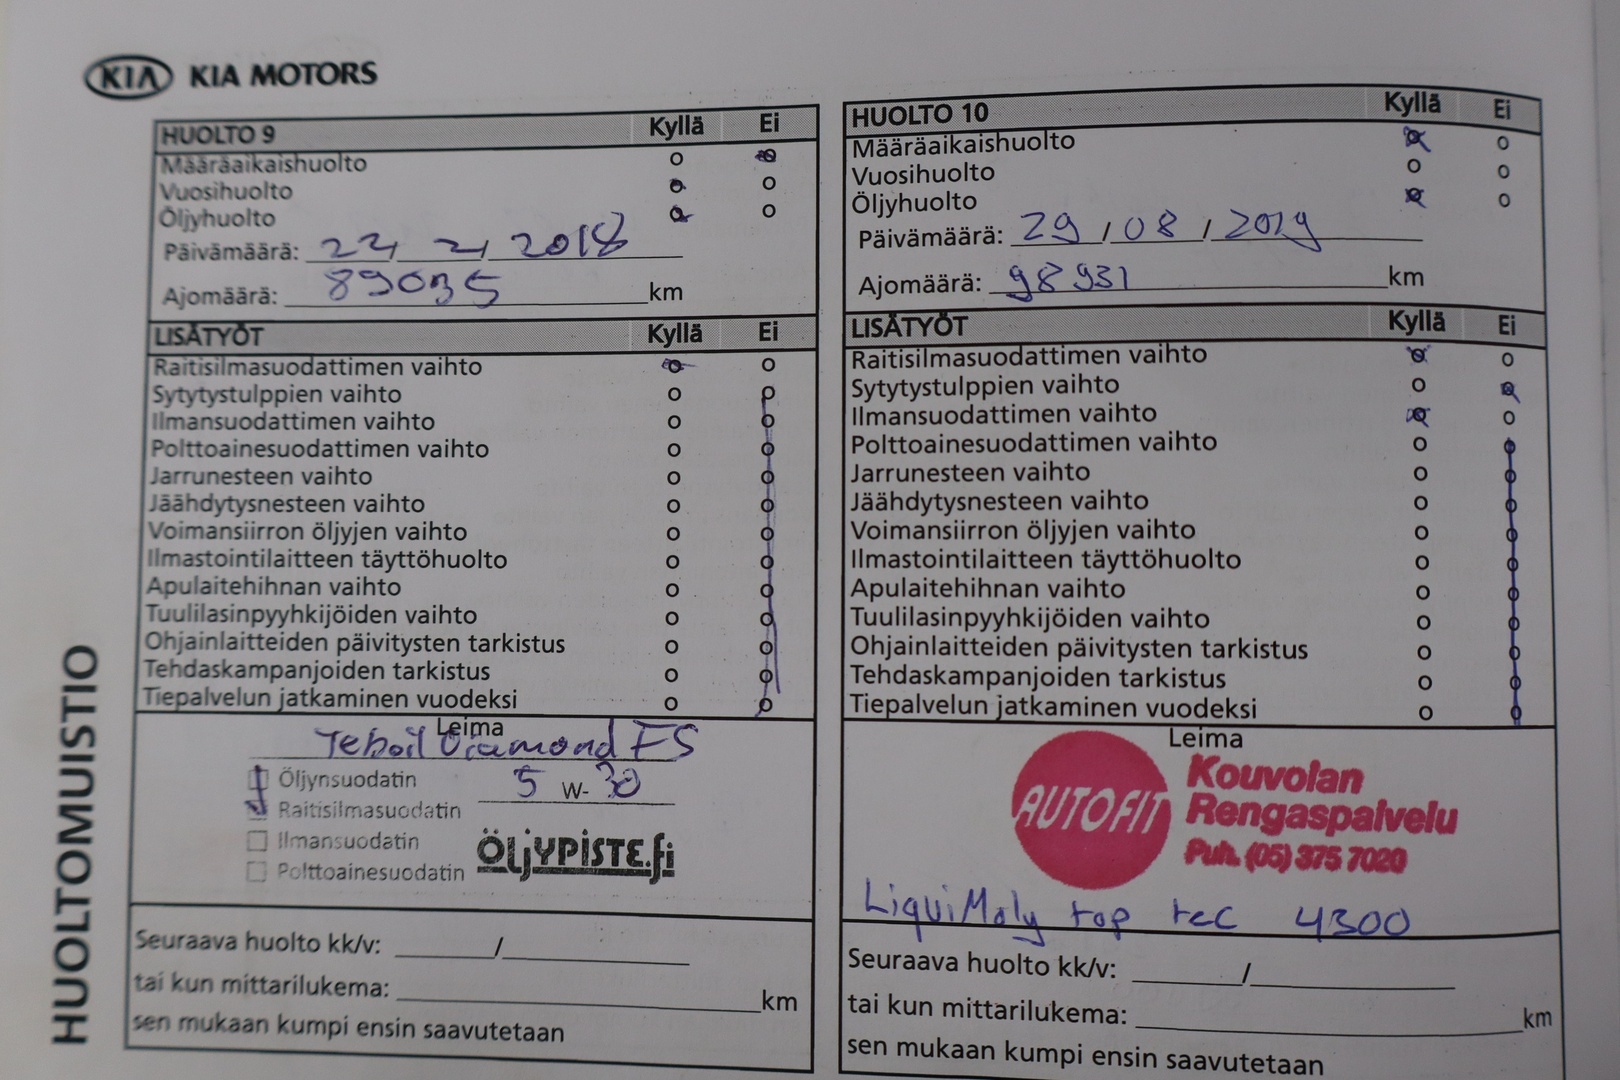 KIA KIA MOTORS
HUOLTOMUISTIO
HUOLTO 9 Kyllä Ei
Määräaikaishuolto
Vuosihuolto
Öljyhuolto
Päivämäärä: 22, 2, 2018
Ajomäärä: 89035 km
LISÄTYÖT Kyllä Ei
Raitisilmasuodattimen vaihto
Sytytystulppien vaihto
Ilmansuodattimen vaihto
Polttoainesuodattimen vaihto
Jarrunesteen vaihto
Jäähdytysnesteen vaihto
Voimansiirron öljyjen vaihto
Ilmastointilaitteen täyttöhuolto
Apulaitehihnan vaihto
Tuulilasinpyyhkijöiden vaihto
Ohjainlaitteiden päivitysten tarkistus
Tehdaskampanjoiden tarkistus
Tiepalvelun jatkaminen vuodeksi
Leima
Teboil Diamond FS
Öljynsuodatin 5 W-30
Raitisilmasuodatin
Ilmansuodatin
Polttoainesuodatin
ÖLJYPISTE.fi
Seuraava huolto kk/v: /
tai kun mittarilukema: km
sen mukaan kumpi ensin saavutetaan
HUOLTO 10 Kyllä Ei
Määräaikaishuolto
Vuosihuolto
Öljyhuolto
Päivämäärä: 29 / 08 / 2019
Ajomäärä: 98931 km
LISÄTYÖT Kyllä Ei
Raitisilmasuodattimen vaihto
Sytytystulppien vaihto
Ilmansuodattimen vaihto
Polttoainesuodattimen vaihto
Jarrunesteen vaihto
Jäähdytysnesteen vaihto
Voimansiirron öljyjen vaihto
Ilmastointilaitteen täyttöhuolto
Apulaitehihnan vaihto
Tuulilasinpyyhkijöiden vaihto
Ohjainlaitteiden päivitysten tarkistus
Tehdaskampanjoiden tarkistus
Tiepalvelun jatkaminen vuodeksi
Leima
AUTOFIT
Kouvolan
Rengaspalvelu
Puh. (05) 375 7020
LiquiMoly top tec 4300
Seuraava huolto kk/v: /
tai kun mittarilukema: km
sen mukaan kumpi ensin saavutetaan